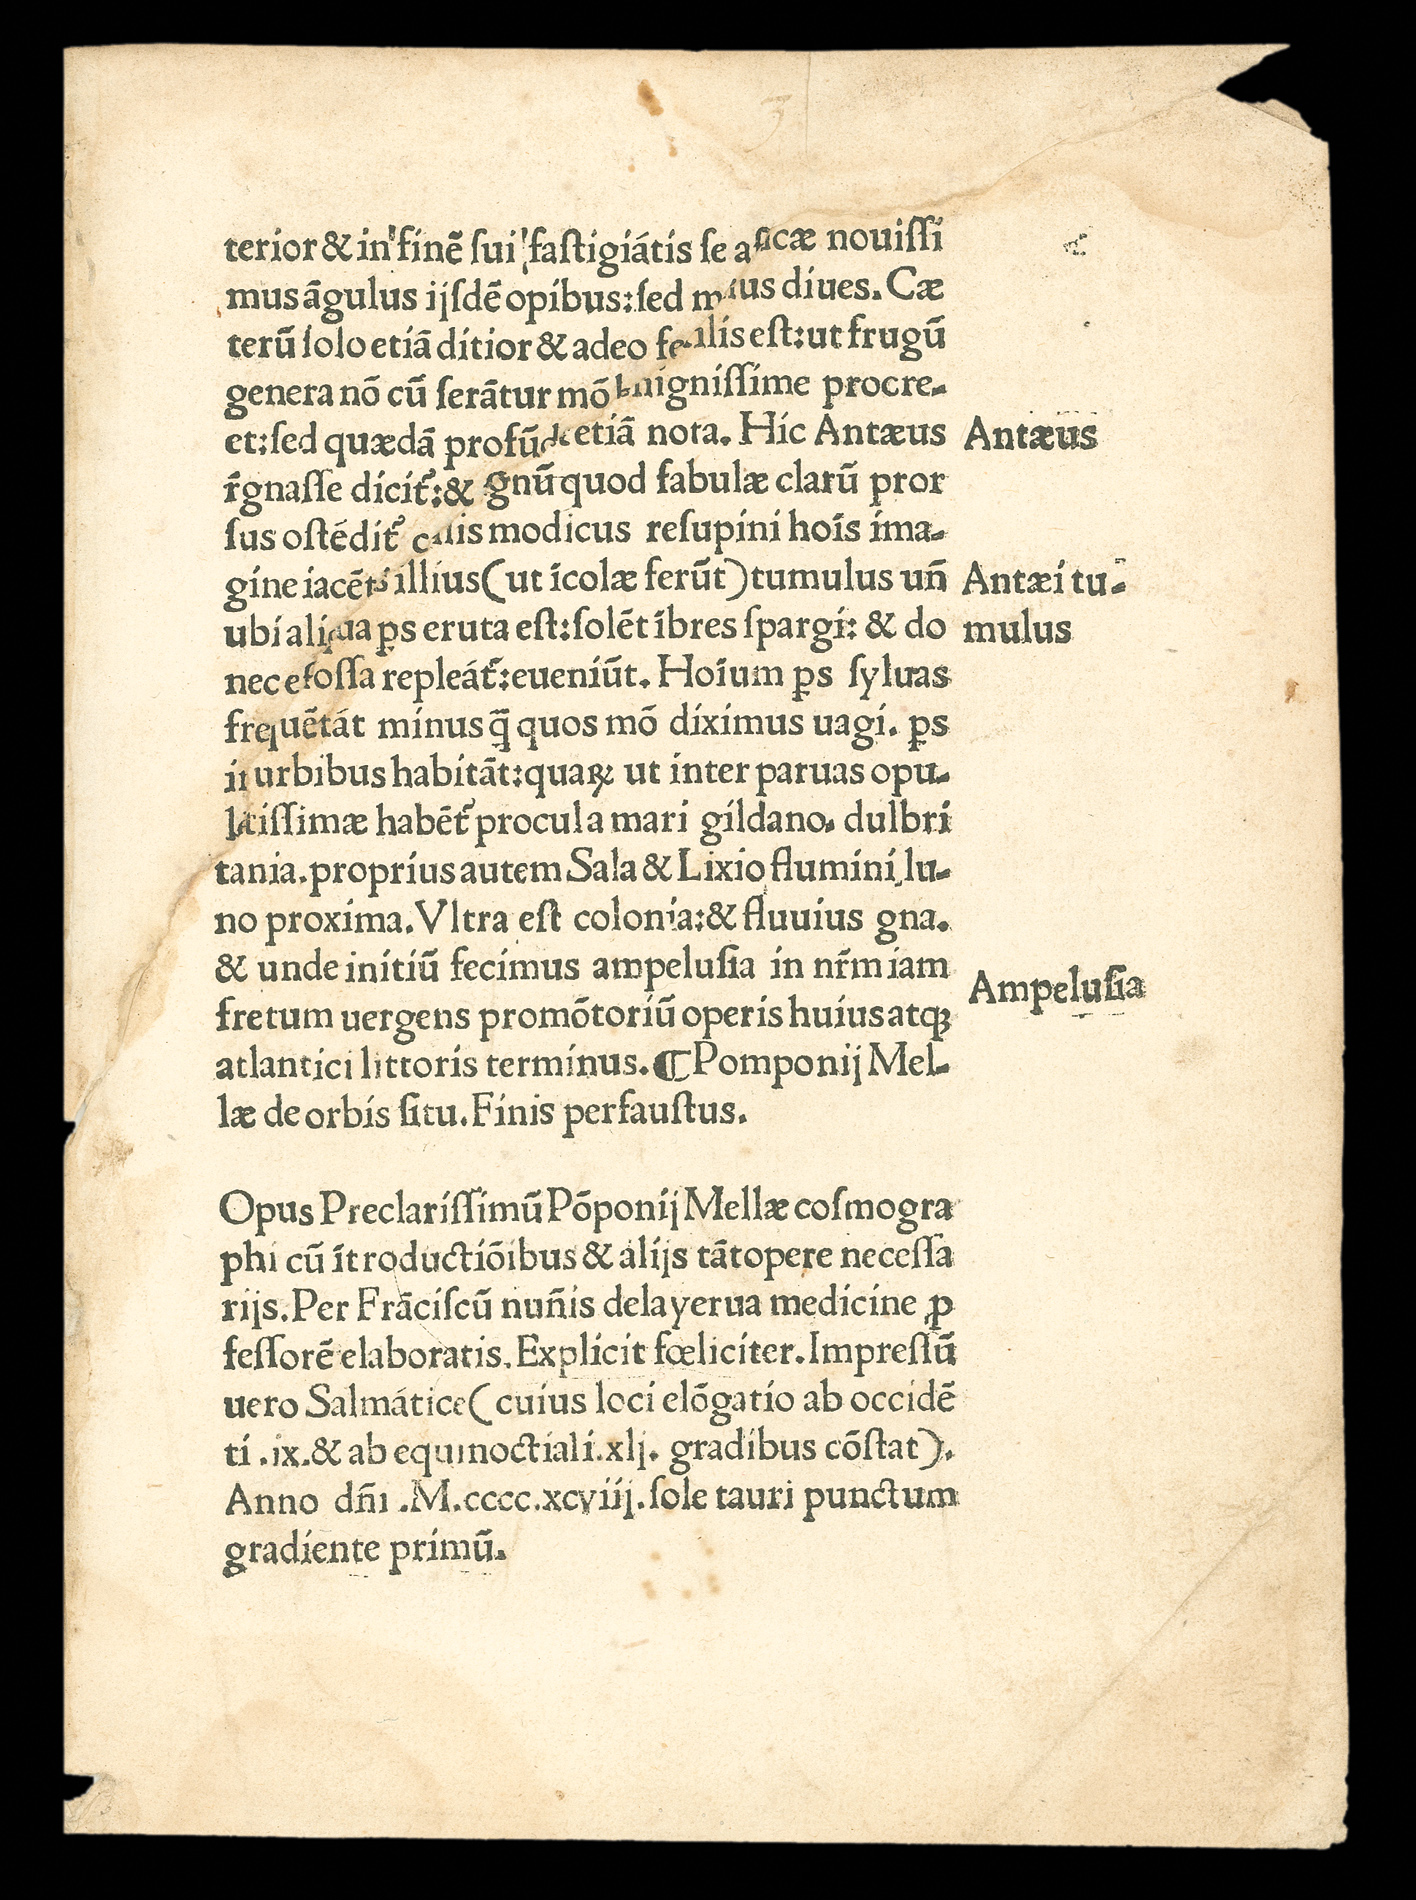 terior & in finē sui fastigiátis se a ficæ nouissi
mus āgulus ijsdē opibus: sed m ius diues. Cæ
terū solo etiā ditior & adeo fe ilis est: ut frugū
genera nō cū serātur mō nignissime procre-
et: sed quædā profūd etiā nota. Hic Antæus
Antæus
r̄gnasse dicit᷑: & gnū quod fabulæ clarū pror
sus ostēdit᷑ c llis modicus resupini hoīs ima-
gine iacēt s illius (ut īcolæ ferūt) tumulus un̄
Antæi tu-
ubi aliqua ꝑs eruta est: solēt ībres spargi: & do
mulus
nec efossa repleát᷑: eueniūt. Hoīum ꝑs syluas
frequētāt minus q̄ quos mō diximus uagi. ꝑs
in urbibus habitāt: quaꝝ ut inter paruas opu-
lētissimæ habēt᷑ procul a mari gildano. dulbri
tania. proprius autem Sala & Lixio flumini lu-
no proxima. Vltra est colonia: & fluuius gna.
& unde initiū fecimus ampelusia in nr̄m iam
Ampelusia
fretum uergens promōtoriū operis huius atqꝫ
atlantici littoris terminus. ¶ Pomponij Mel-
læ de orbis situ. Finis perfaustus.
Opus Preclarissimū Pōponij Mellæ cosmogra
phi cū ītroductiōibus & alijs tātopere necessa
rijs. Per Frāciscū nun̄is delayerua medicine ꝓ
fessorē elaboratis. Explicit fœliciter. Impressū
uero Salmátice (cuius loci elōgatio ab occidē
ti .ix. & ab equinoctiali .xlj. gradibus cōstat).
Anno dn̄i .M.cccc.xcviij. sole tauri punctum
gradiente primū.